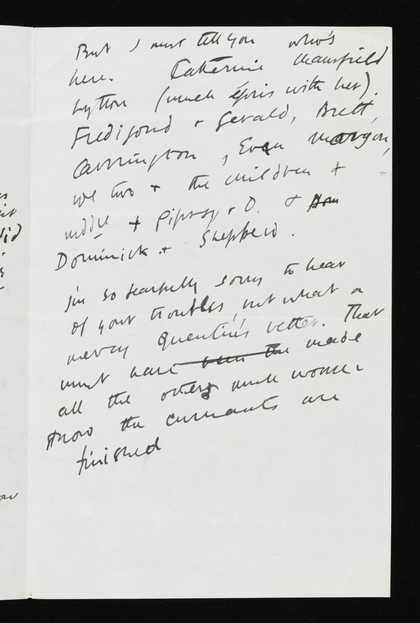 But I must tell you who's
here. Catherine Mansfield
Lytton (much épris with her)
Fredigond + Gerald, Brett,
Carrington, Evan Morgan,
we two + the children +
Mdlle + Pipsey + D. +
Dominick + Shepherd.
I'm so fearfully sorry to hear
of your troubles, but what a
mercy Quentin's better. That
must have made
all the others much worse
know the currants are
finished